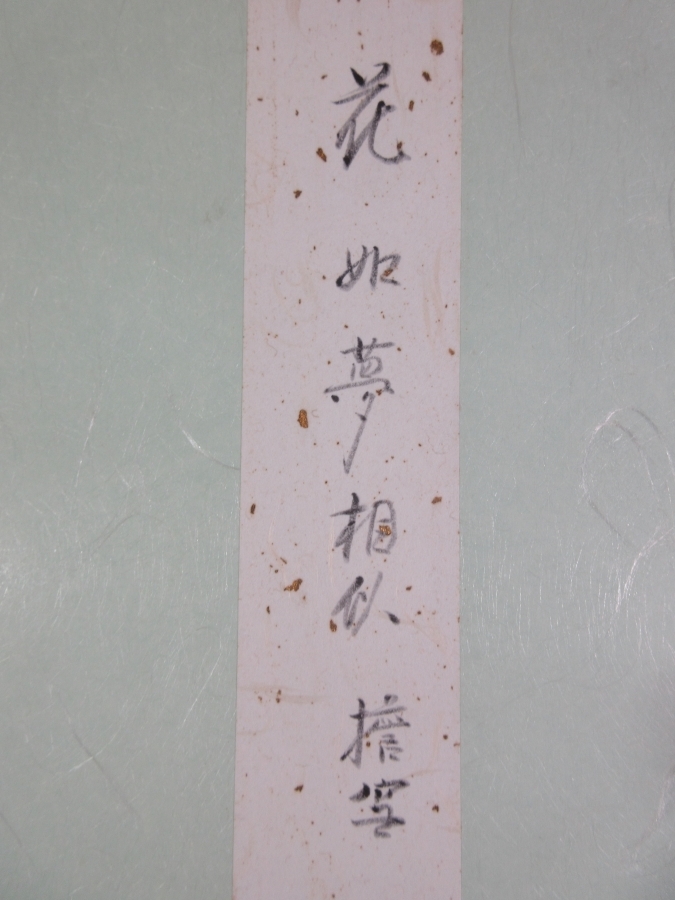 花 如夢相似 擔雪